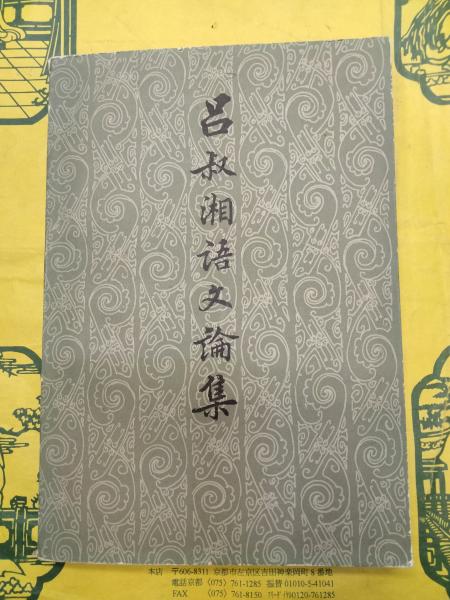 吕叔湘语文論集
本店 〒606-8311 京都市左京区吉田神楽岡町8番地
電話京都 (075) 761-1285 振替 01010-5-41041
FAX (075) 761-8150 フリーダイヤル(F)0120-761285